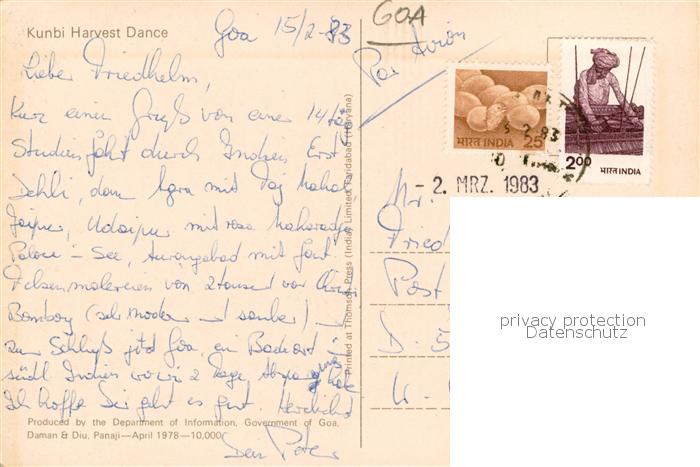 Kunbi Harvest Dance
Goa 15/2-83
GOA
Par Avion
Lieber Friedhelm,
Kurz einen Gruß von einer 14/täg
Studienfahrt durch Indien. Erst
Dehli, dann Agra mit Taj Mahal
Jaipur, Udaipur mit rosa Maharadja
Palace - See, Aurangabad mit fant.
Felsenmalereien von 2 tausend vor Chr.
Bombay (sehr modern und sauber)
zum Schluß jetzt Goa, ein Badeort in
südl Indien wo wir 2 Tage
Ich hoffe Dir geht es gut. Herzlichst
Dein Peter
Produced by the Department of Information, Government of Goa,
Daman & Diu, Panaji—April 1978—10,000
Printed at Thomson Press (India) Limited, Faridabad (Haryana)
भारत INDIA 25
2.00
भारत INDIA
2.83
- 2. MRZ. 1983
Mr.
Fried
Post
D. 5
privacy protection
Datenschutz